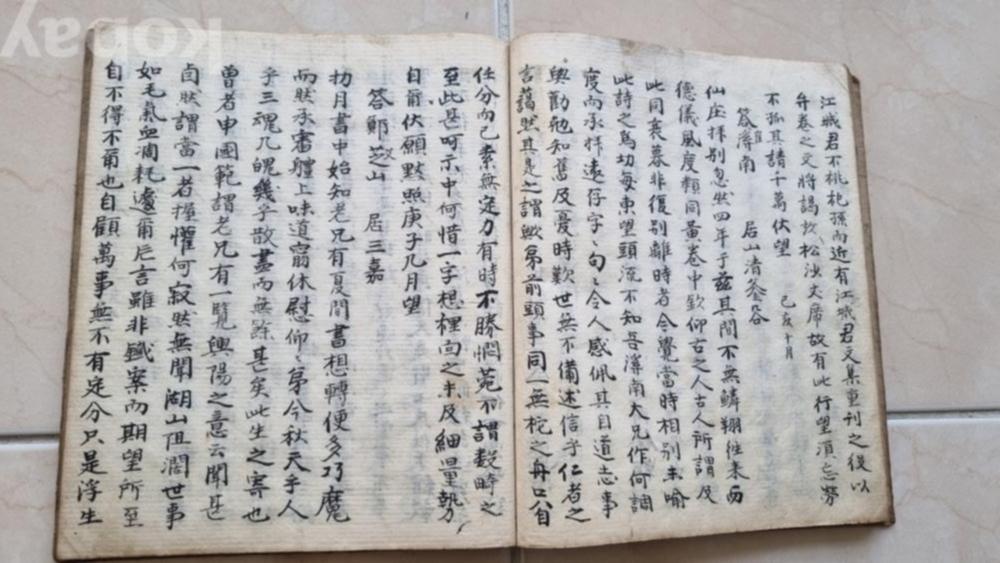 江城君不祧祀孫而近有江城君文集重刊之役以
弁卷之文將謁於松浊丈席故有此行望須忘勞
不孤其諸千萬伏望 己亥十月
答崔溥南 居山清釜谷
仙庄拜別忽然四年于玆其間不無鱗翔往来而
德儀風度類同黃卷中欽仰古之人古人所謂及
此同衰暮非復別離時者今覺當時相別未喻
此詩之爲切每東望頭流不知吾溥南大兄作何調
度而承拜遠存字〻句〻令人感佩其自道志事
與勸勉知舊及憂時歎世無不備述信乎仁者之
言藹然其是之謂歟弟前頭事同一無柁之舟只自
任分而已素無定力有時不勝惱菀不謂數時之
至此甚呵示中何惜一字想裡面之未及細量勢
自爾伏願默照庚子几月望
答鄭芝山 居三嘉
初月書中始知老兄有夏間書想轉便多巧魔
而然承審軆上味道窮休慰仰〻弟今秋天手人
乎三魂几魄幾乎散盡而無餘甚矣此生之寄也
曾者申國範謂老兄有一覽興陽之意云聞甚
卣然謂當一者握懼何寂然無聞湖山阻濶世事
如毛氣血凋耗遽爾卮言雖非鐵案而期望所至
自不得不爾也自顧萬事無不有定分只是浮生
kobay